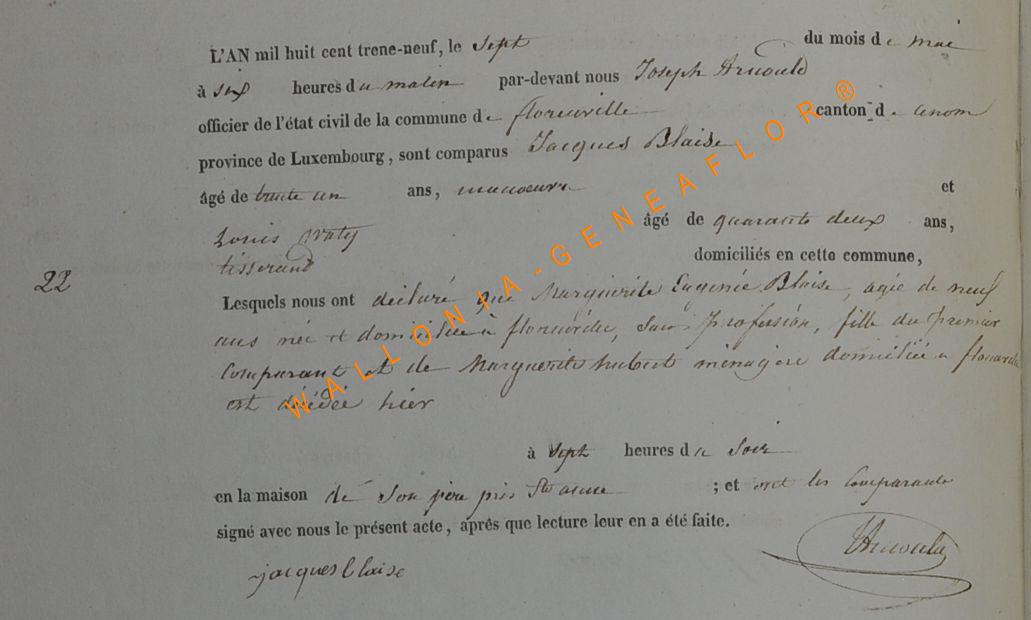 L'AN mil huit cent trene-neuf, le sept du mois de mai
à six heures du matin par-devant nous Joseph Arnould
officier de l'état civil de la commune de florenville canton d
province de Luxembourg, sont comparus Jacques Blaise
âgé de trente un ans, manoeuvre et
Louis âgé de quarante deux ans,
tisserand domiciliés en cette commune,
22
Lesquels nous ont déclaré que Marguerite Eugénie Blaise, agée de neuf
ans née et domiciliée à florenville, Sans profession, fille du premier
Comparant et de Marguerite hubert ménagère domiciliée a florenville
est décédée hier
à sept heures du Soir
en la maison de Son père près Ste anne ; et ont les Comparants
signé avec nous le présent acte, après que lecture leur en a été faite.
jacques blaise JArnould
WALLONIA-GENEAFLOR®